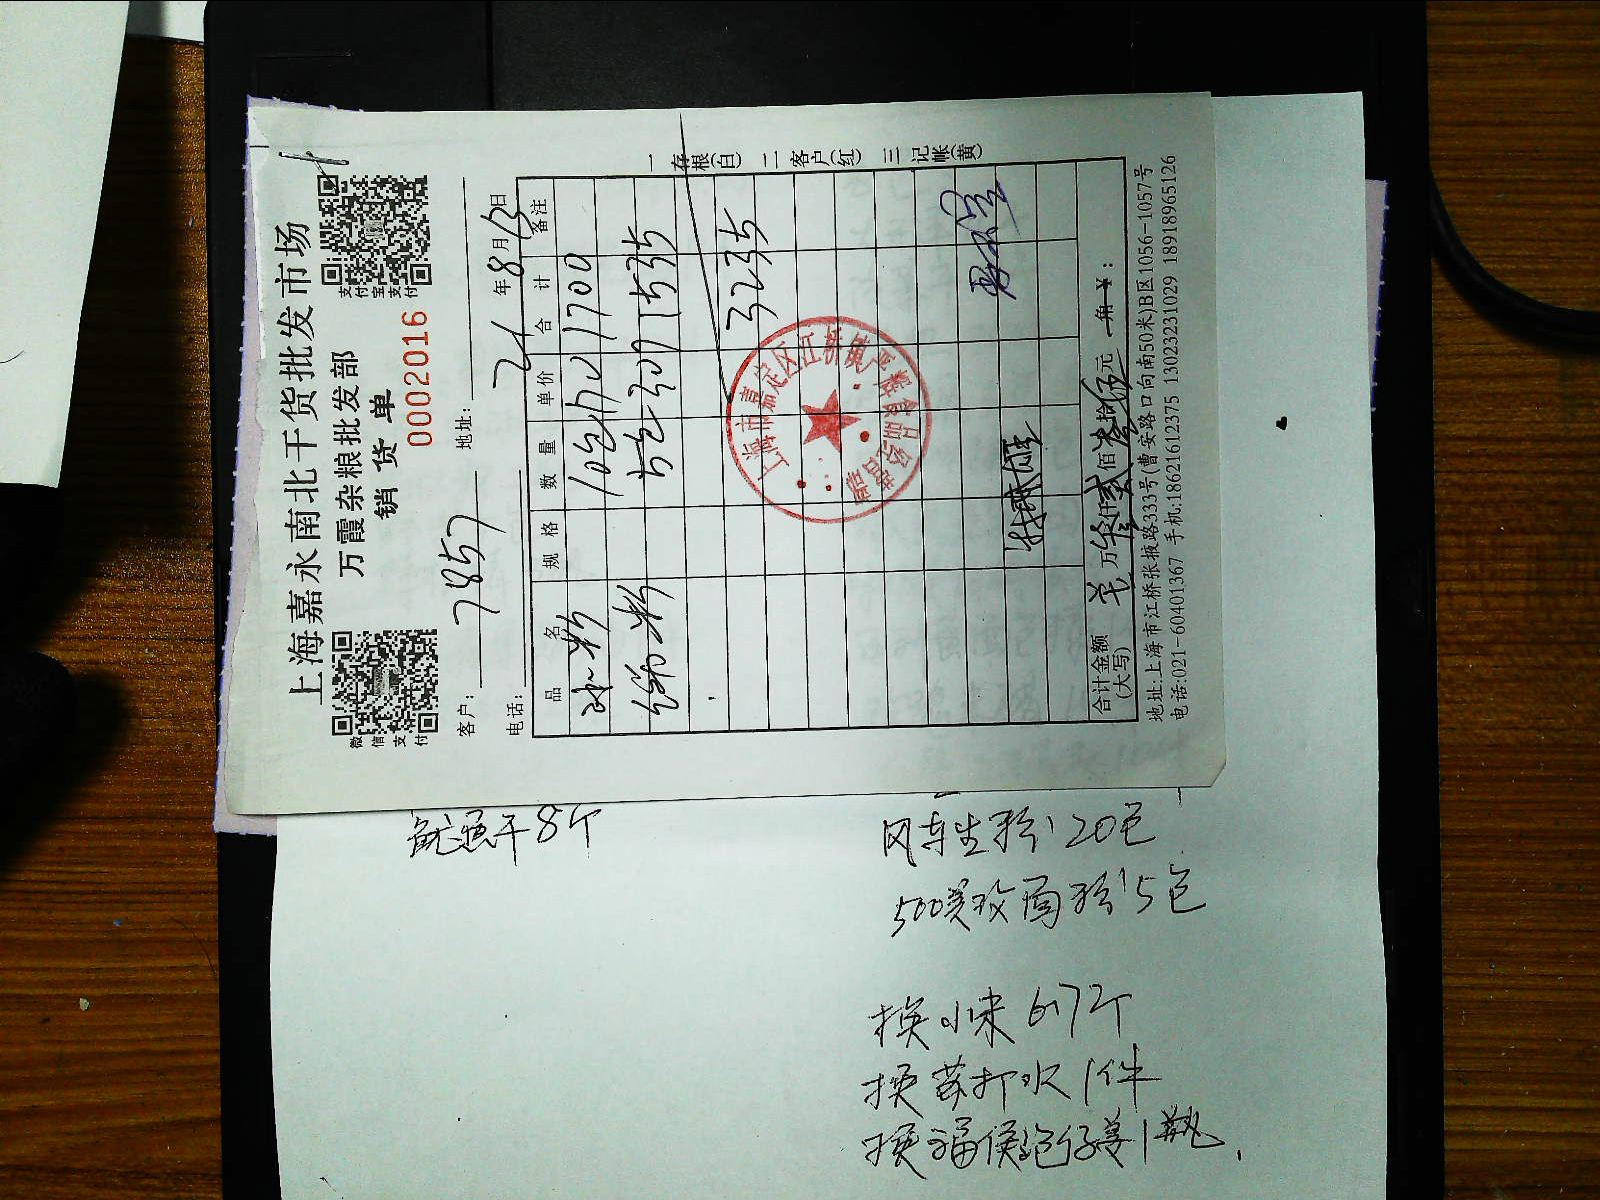 上海嘉永南北干货批发市场
万霞杂粮批发部
销货单
0002016
微信支付
支付宝支付
客户: 7857 地址:
电话: 21年8月13日
品名 规格 数量 单价 合计 备注
10包 170 1700
5包 307 1535
3235
上海市嘉定区江桥镇严耀食品经营部
合计金额(大写) 万 仟 佰 拾 元 角 ¥:
地址:上海市江桥张掖路333号(曹安路口向南50米)B区1056-1057号
电话:021-60401367 手机:18621612375 13023231029 18918965126
一存根(白) 二客户(红) 三记帐(黄)
鱿鱼干8个
风车生粉 20包
面粉 5包
换小米 6.7斤
换苏打水1件
换 1瓶